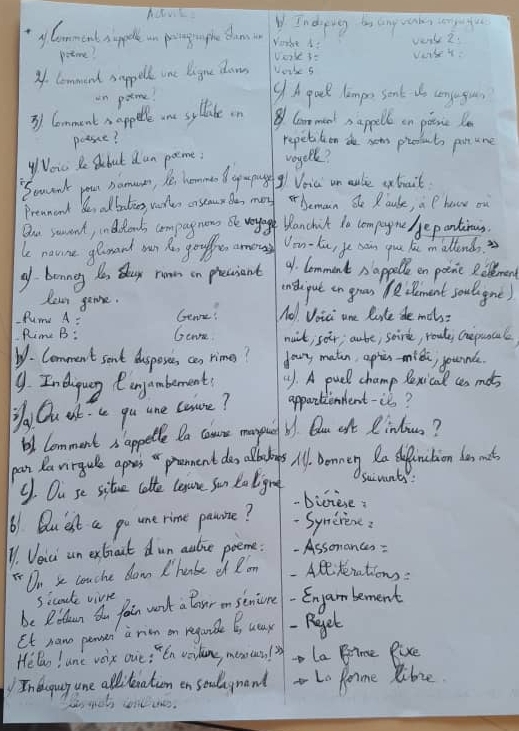 Activité :
1/ Comment s'appelle un paragraphe dans un
poème ?
2/. Comment s'appelle une ligne dans
un poème ?
3/ Comment s'appelle une syllabe en
poésie ?
4/ Voici le début d'un poème :
"Souvent pour s'amuser, les hommes d'équipage
Prennent des albatros, vastes oiseaux des mers
Qui suivent, indolents compagnons de voyage
Le navire glissant sur les gouffres amers"
a/- Donnez les deux rimes en précisant
leur genre.
- Rime A : Genre :
- Rime B : Genre :
b/- Comment sont disposées ces rimes ?
c/. Indiquez l'enjambement :
5/a/ Qu'est-ce qu'une césure ?
b/ Comment s'appelle la césure marquée
par la virgule après "prennent des albatros
c/. Où se situe cette césure sur la ligne
6/. Qu'est-ce qu'une rime pauvre ?
7/. Voici un extrait d'un autre poème :
"On se couche dans l'herbe et l'on
s'écoute vivre
De l'odeur du foin vert à loisir on s'enivre
Et sans penser à rien on regarde les cieux
Hélas ! une voix crie : "En voiture, messieurs !"
Indiquez une allitération en soulignant
les mots
b/ Indiquez les cinq verbes conjugués
Verbe 1 : Verbe 2 :
Verbe 3 : Verbe 4 :
Verbe 5
c/ A quel temps sont-ils conjugués ?
8/ Comment s'appelle en poésie la
répétition de sons produits par une
voyelle ?
9/ Voici un autre extrait :
"Demain dès l'aube, à l'heure où
blanchit la campagne / je partirais.
Vois-tu, je sais que tu m'attends."
a/. Comment s'appelle en poésie l'élément
indiqué en gras (l'élément souligné)
10/ Voici une liste de mots :
nuit, soir, aube, soirée, route, crépuscule,
jour, matin, après-midi, journée.
a/. A quel champ lexical ces mots
appartiennent-ils ?
b/. Qui est l'intrus ?
11/. Donnez la définition des mots
suivants :
- Diérèse :
- Synérèse :
- Assonances :
- Allitérations :
- Enjambement
- Rejet
→ La forme fixe
→ La forme libre.